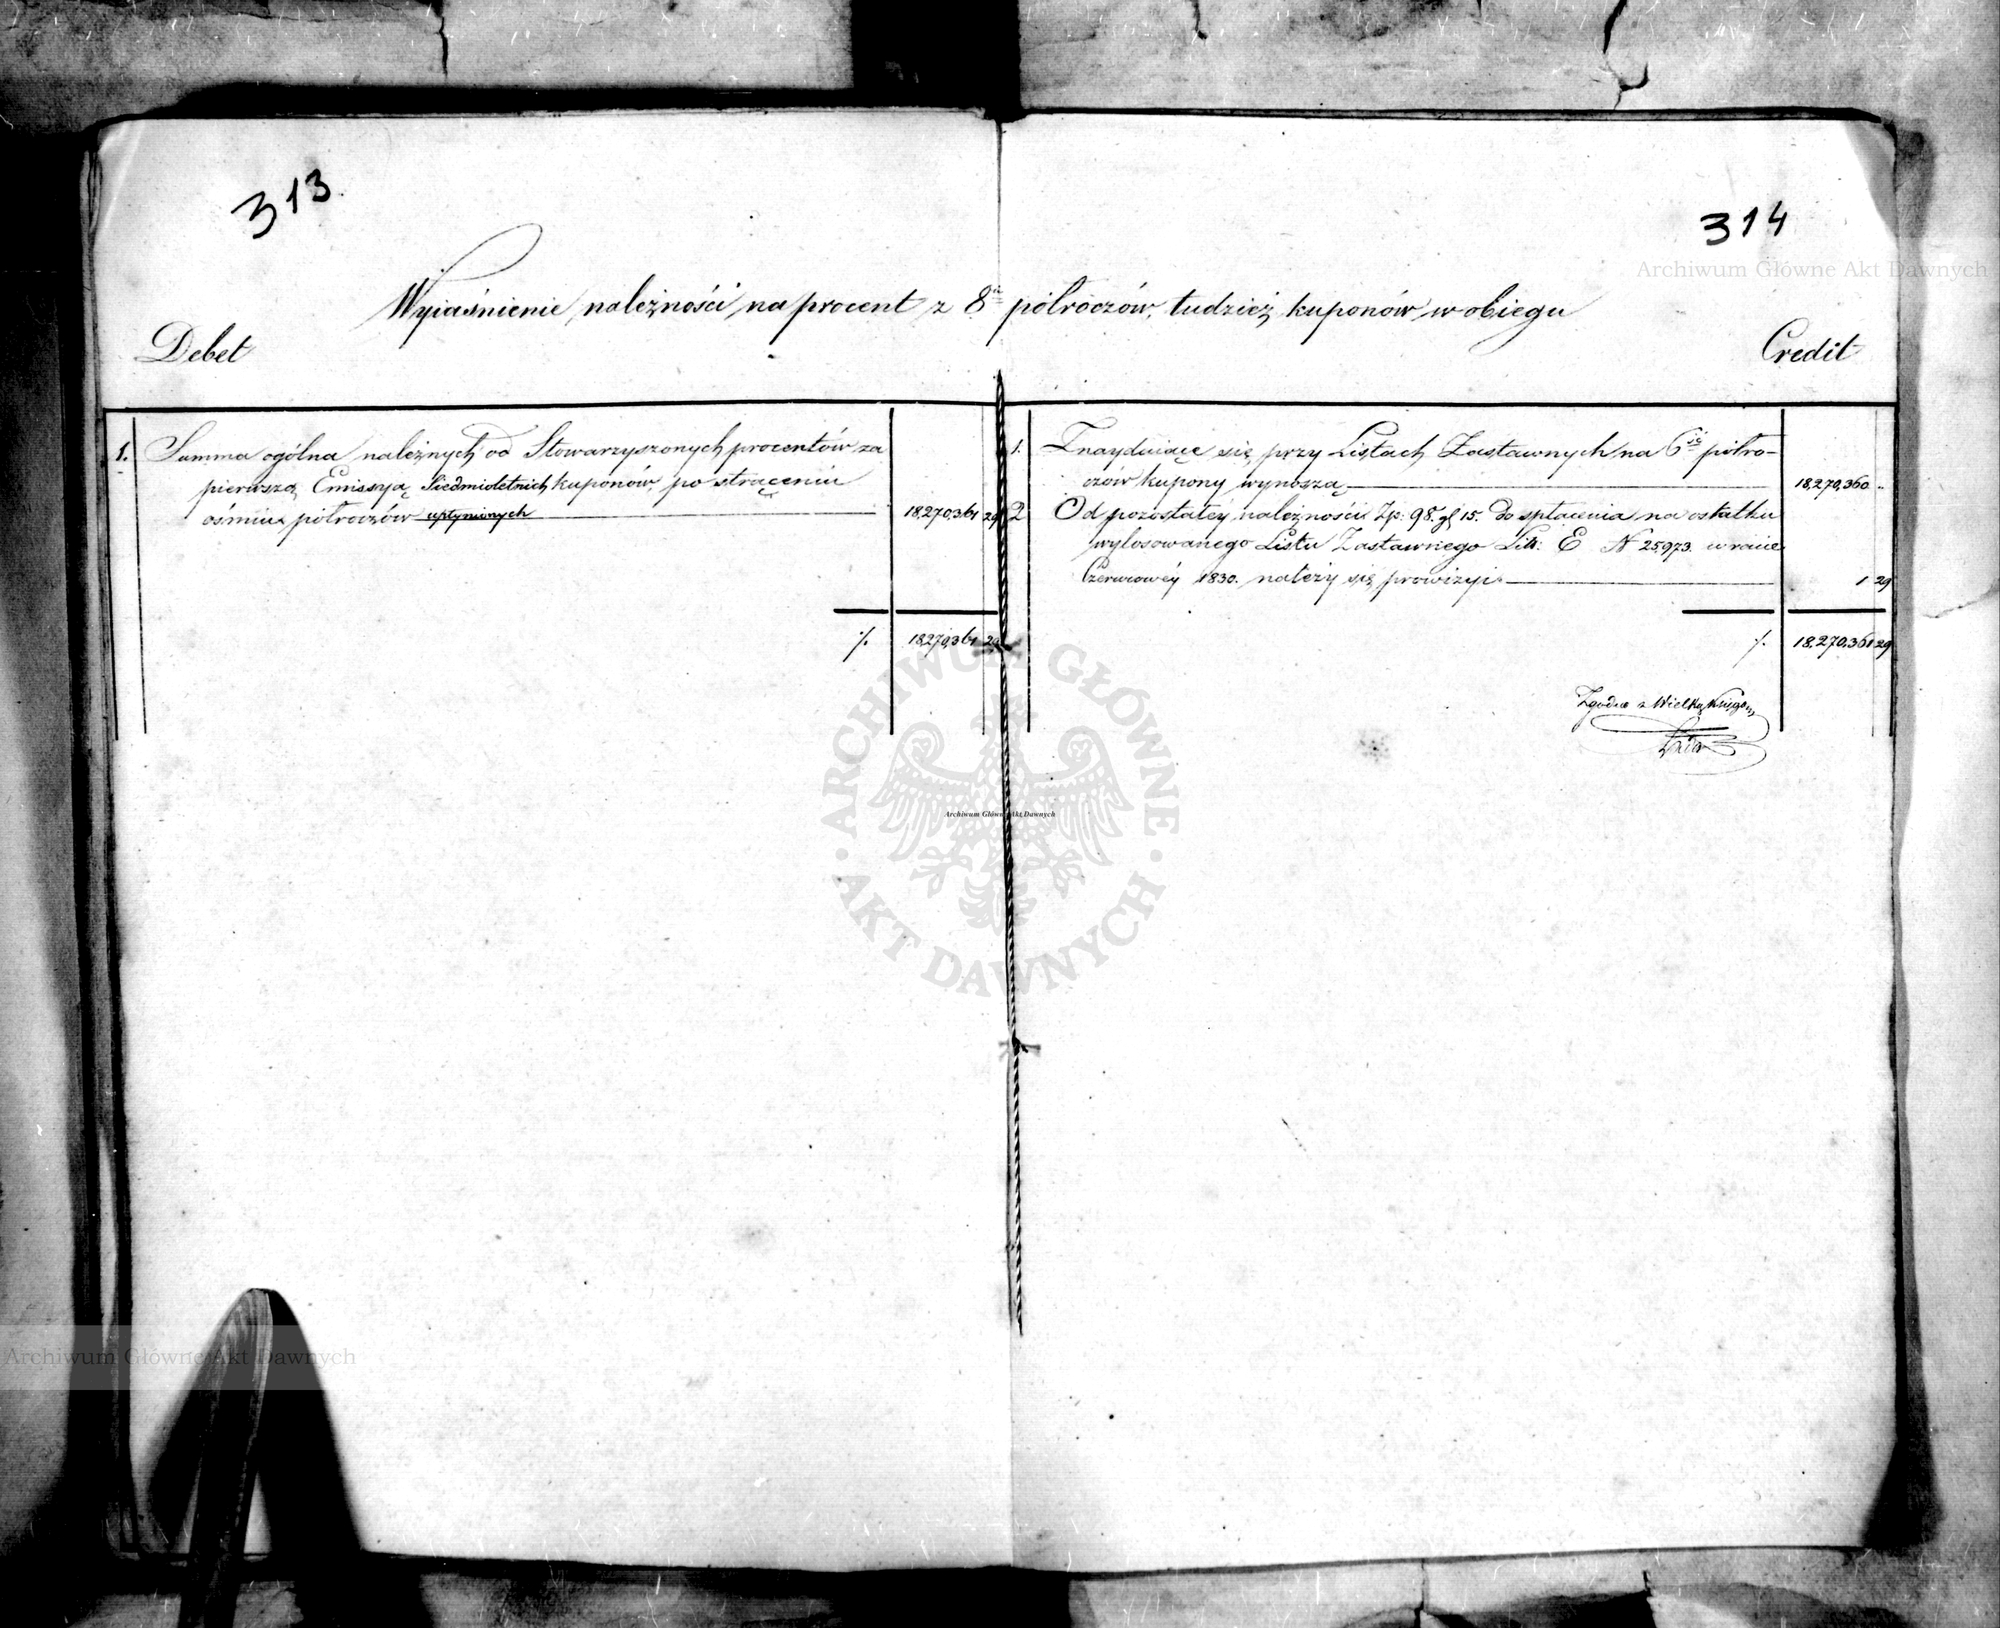 313.
314
Archiwum Główne Akt Dawnych
Wyiaśnienie należności na procent z 8iu półroczów, tudzież kuponów w obiegu
Debet
Credit
1. Summa ogólna należnych od Stowarzyszonych procentów za
pierwszą Emissyą Siedmioletnich kuponów, po strąceniu
ośmiu półroczów upłynionych 18,270,361 29
% 18,270,361 29
1. Znayduiące się przy Listach Zastawnych na 6ść półro-
czów kupony wynoszą 18,270,360 "
2 Od pozostałéy należności Zp: 98. gł 15. do spłacenia na ostatku
wylosowanego Listu Zastawnego Litt: E N 25,973. w racie
Czerwcowéy 1830. należy się prowizyi 1 29
% 18,270,361 29
Zgodno z Wielką Księgą
ARCHIWUM GŁÓWNE
Archiwum Główne Akt Dawnych
AKT DAWNYCH
Archiwum Główne Akt Dawnych